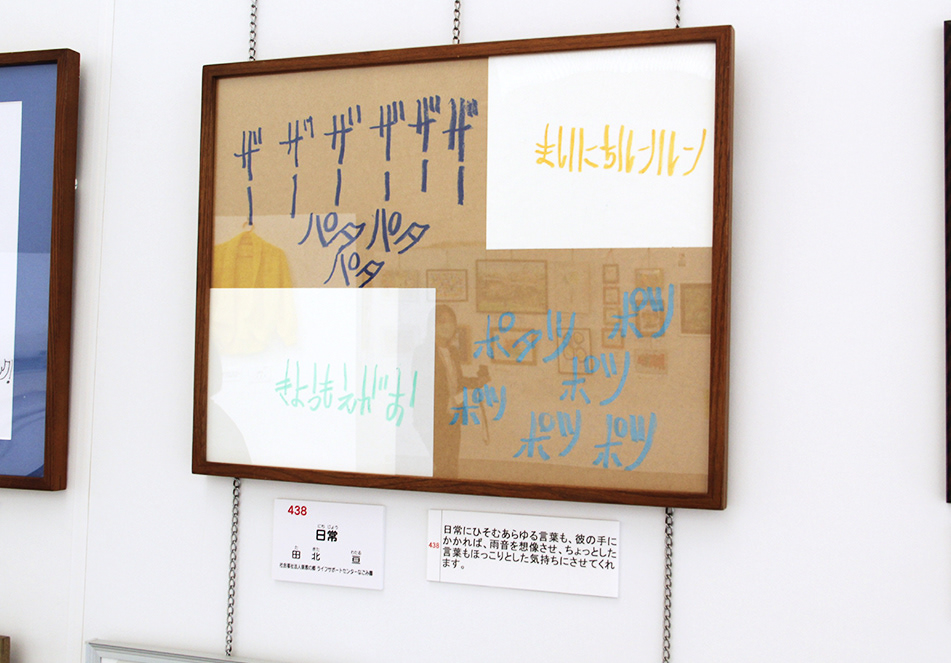 ザー ザー ザー ザー ザー ザー
パタ パタ
パタ
まいにちルンルン
きょうもえがお
ポタツ ポツ
ポツ ポツ
ポツ ポツ
438
にちじょう
日常
た きた わたる
田 北 亘
ライフサポートセンターなごみ園
438
日常にひそむあらゆる言葉も、彼の手に
かかれば、雨音を想像させ、ちょっとした
言葉もほっこりとした気持ちにさせてくれ
ます。